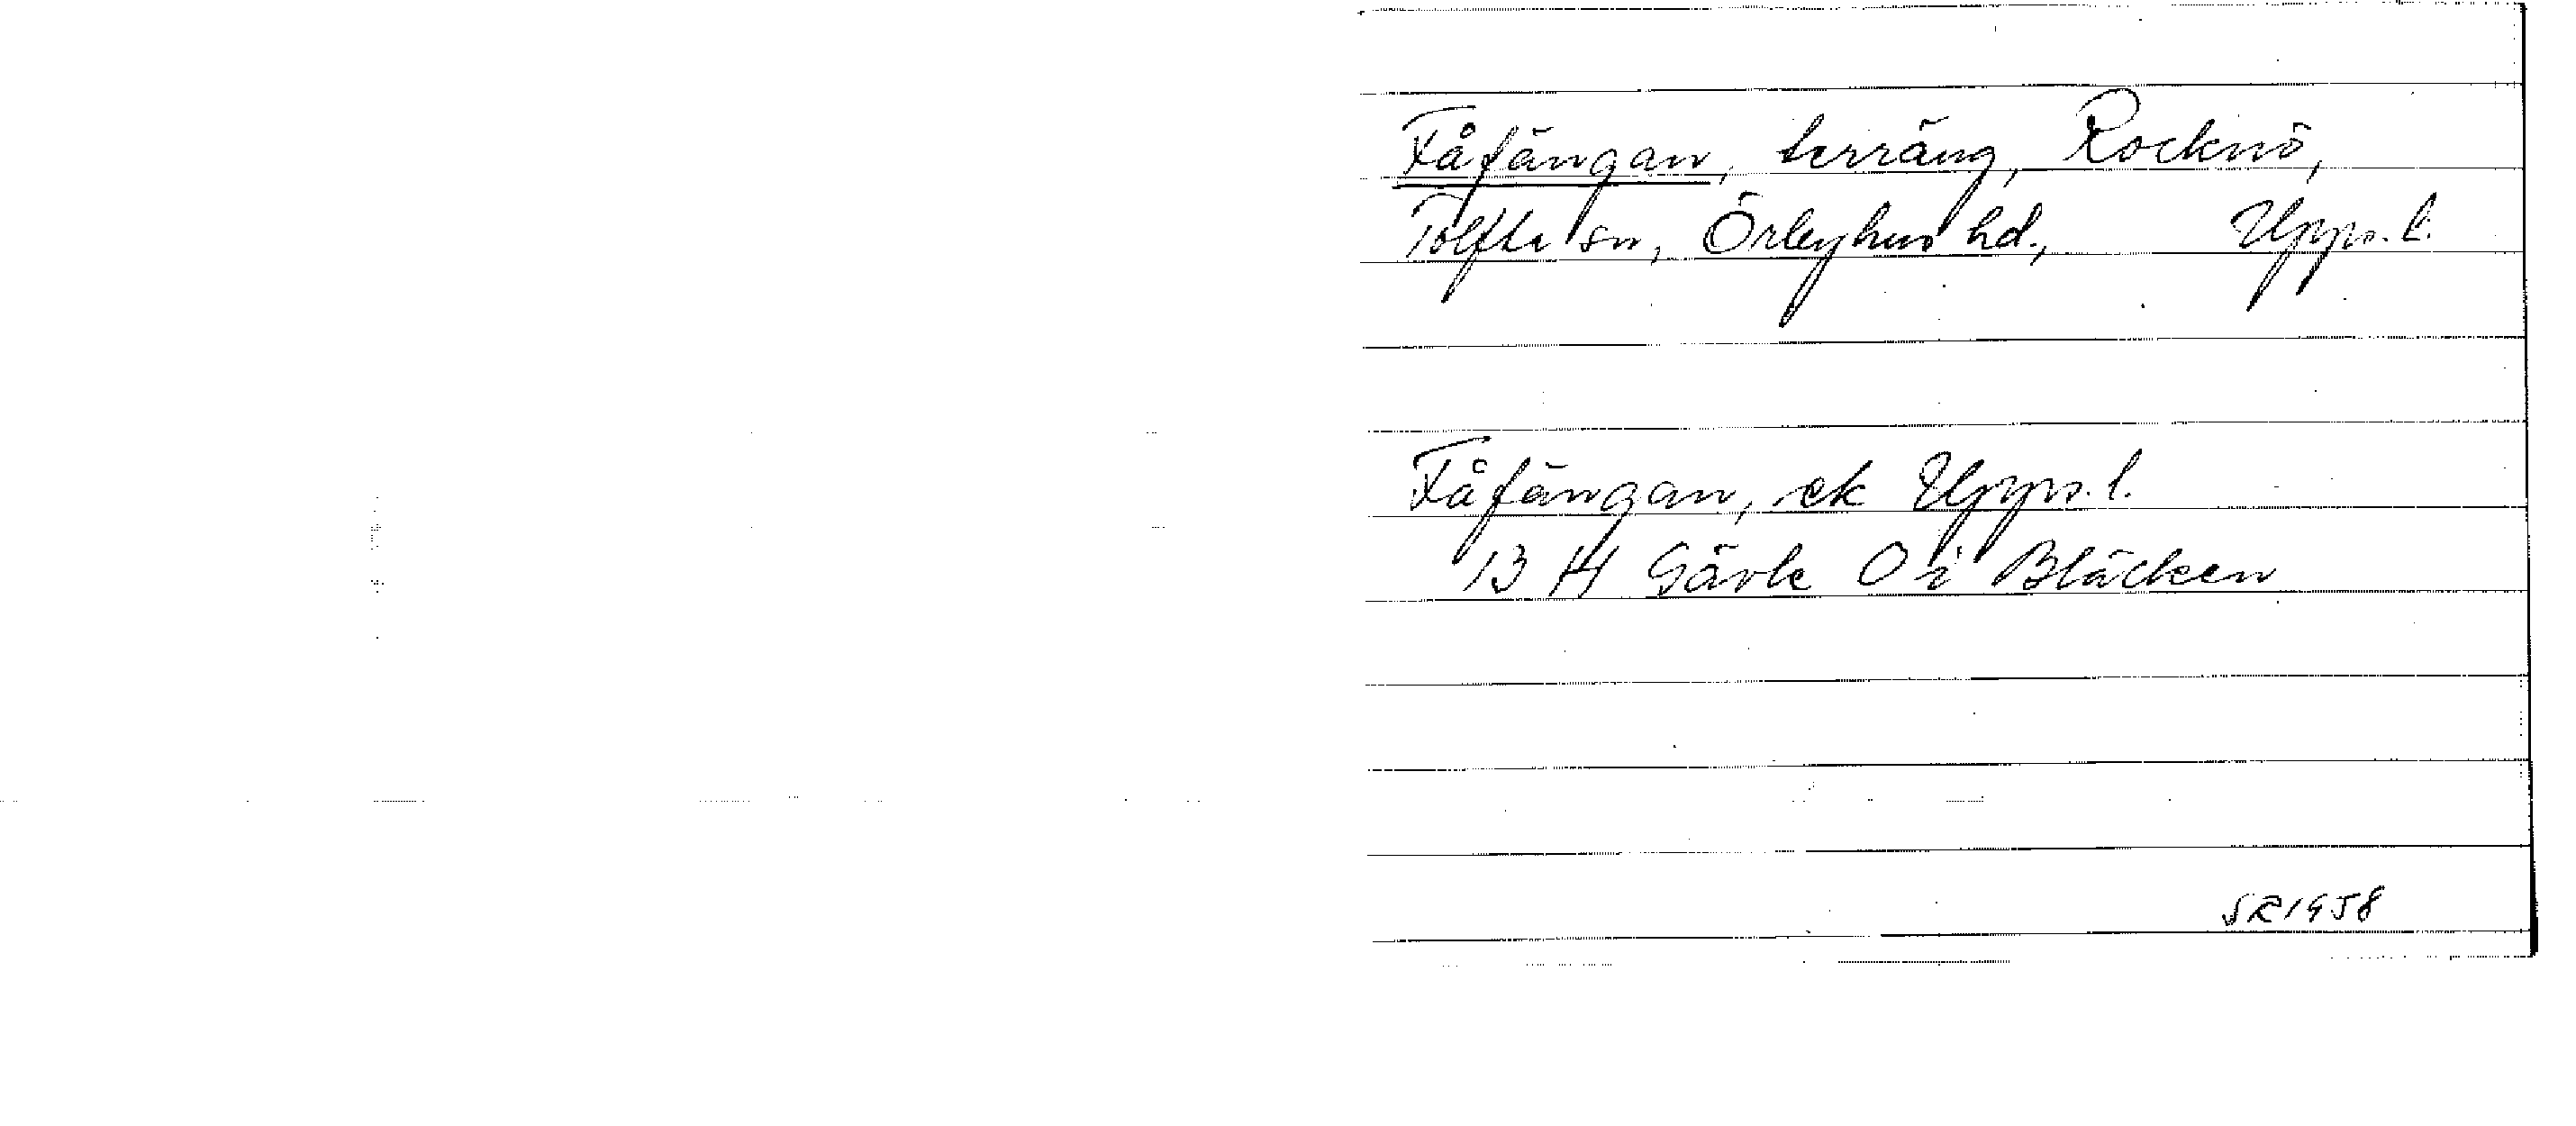 Fåfängan, terräng, Rocknö,
Tolfta sn, Örbyhus hd., Upps. l.
Fåfängan, ek Upps. l.
13 H Gävle O i Bläcken
SR 1958